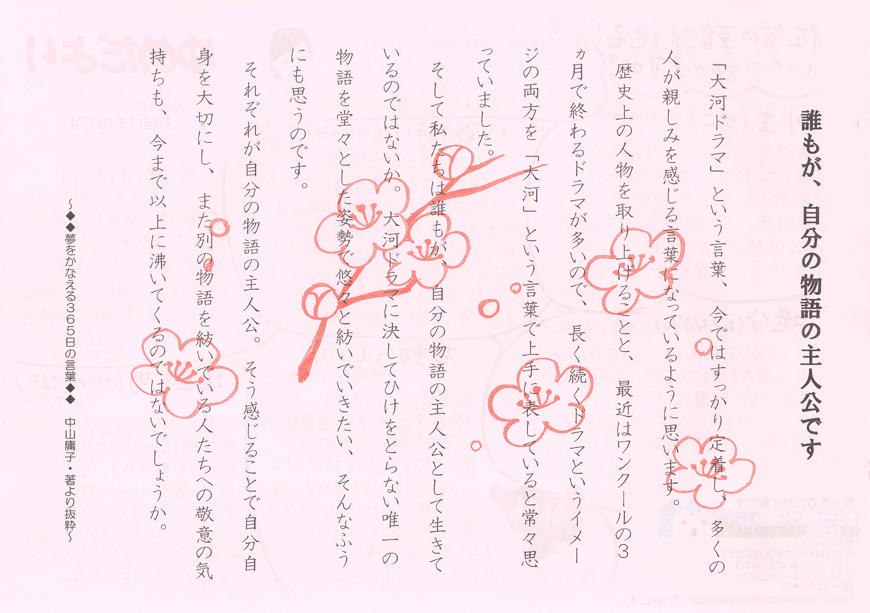 誰もが、自分の物語の主人公です
「大河ドラマ」という言葉、今ではすっかり定着し、多くの
人が親しみを感じる言葉になっているように思います。
歴史上の人物を取り上げることと、最近はワンクールの3
ヵ月で終わるドラマが多いので、長く続くドラマというイメー
ジの両方を「大河」という言葉で上手に表していると常々思
っていました。
そして私たちは誰もが、自分の物語の主人公として生きて
いるのではないか。大河ドラマに決してひけをとらない唯一の
物語を堂々とした姿勢で悠々と紡いでいきたい、そんなふう
にも思うのです。
それぞれが自分の物語の主人公。そう感じることで自分自
身を大切にし、また別の物語を紡いでいる人たちへの敬意の気
持ちも、今まで以上に沸いてくるのではないでしょうか。
～◆◆夢をかなえる365日の言葉◆◆　中山庸子・著より抜粋～